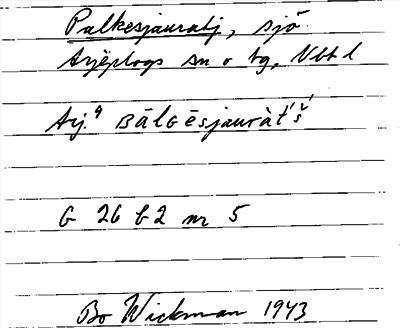 Palkesjauratj, sjö.
Arjeplogs sn o tg, Vbt l
Arj. q BĀLGĒsjauràt́š́
G 26 b2 nr 5
Bo Wickman 1943